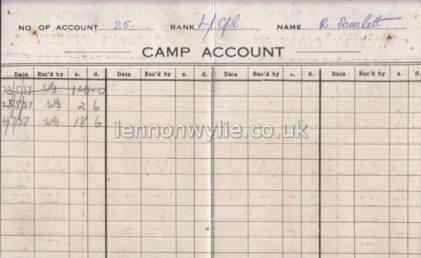 NO. OF ACCOUNT 25. RANK L/Cpl NAME R. Scarlett
CAMP ACCOUNT
Date Rec'd by s. d. Date Rec'd by s. d. Date Rec'd by s. d. Date Rec'd by s. d.
2 6
18 6
lennonwylie.co.uk